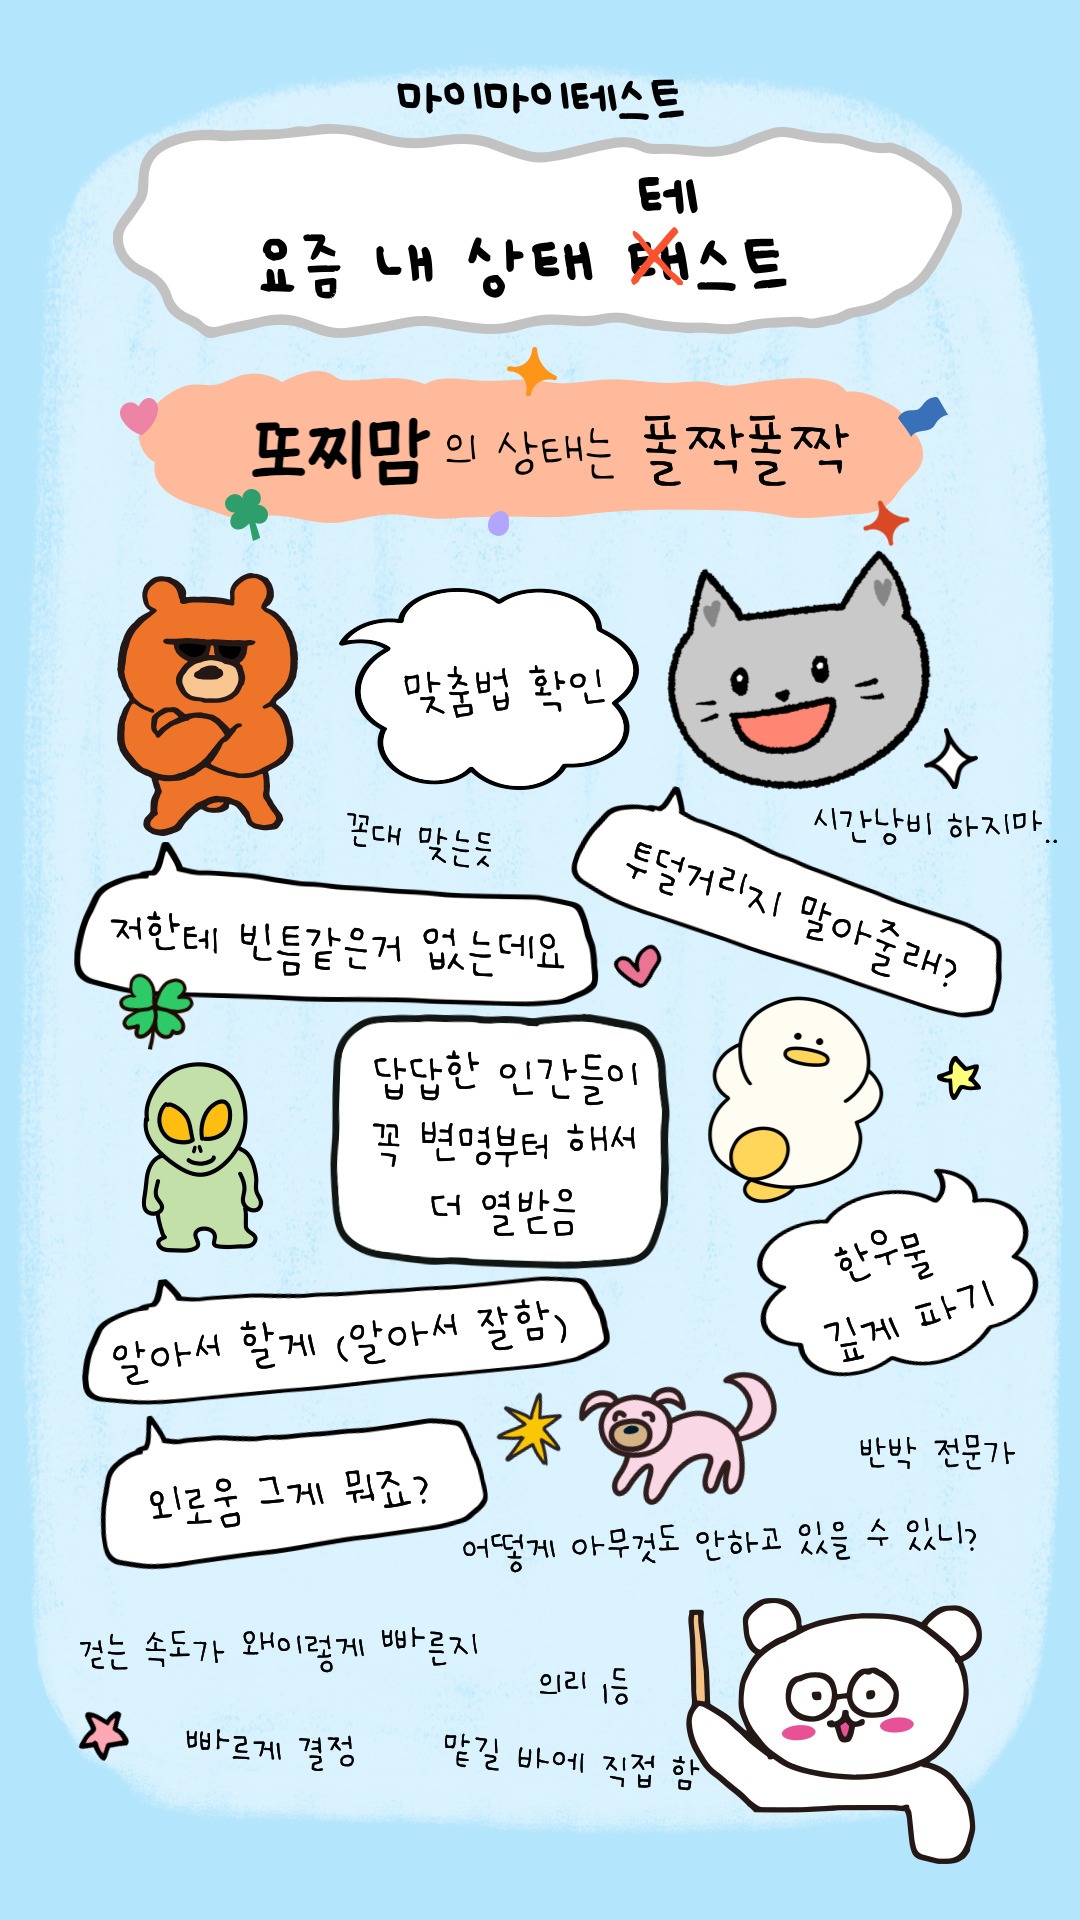 마이마이테스트
테
요즘 내 상태 태스트
또찌맘의 상태는 폴짝폴짝
맞춤법 확인
꼰대 맞는듯
시간낭비 하지마..
투덜거리지 말아줄래?
저한테 빈틈같은거 없는데요
답답한 인간들이
꼭 변명부터 해서
더 열받음
한우물
깊게 파기
알아서 할게 (알아서 잘함)
외로움 그게 뭐죠?
반박 전문가
어떻게 아무것도 안하고 있을 수 있니?
걷는 속도가 왜이렇게 빠른지
의리 1등
빠르게 결정
맡길 바에 직접 함